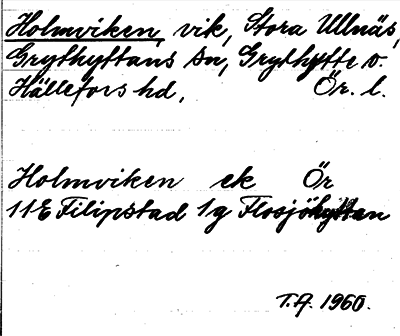 Holmviken, vik, Stora Ullnäs,
Grythyttans sn, Grythytte o.
Hällefors hd, Ör. l.
Holmviken ek Ör
11E Filipstad 1g Flosjöhyttan
T.A. 1960.